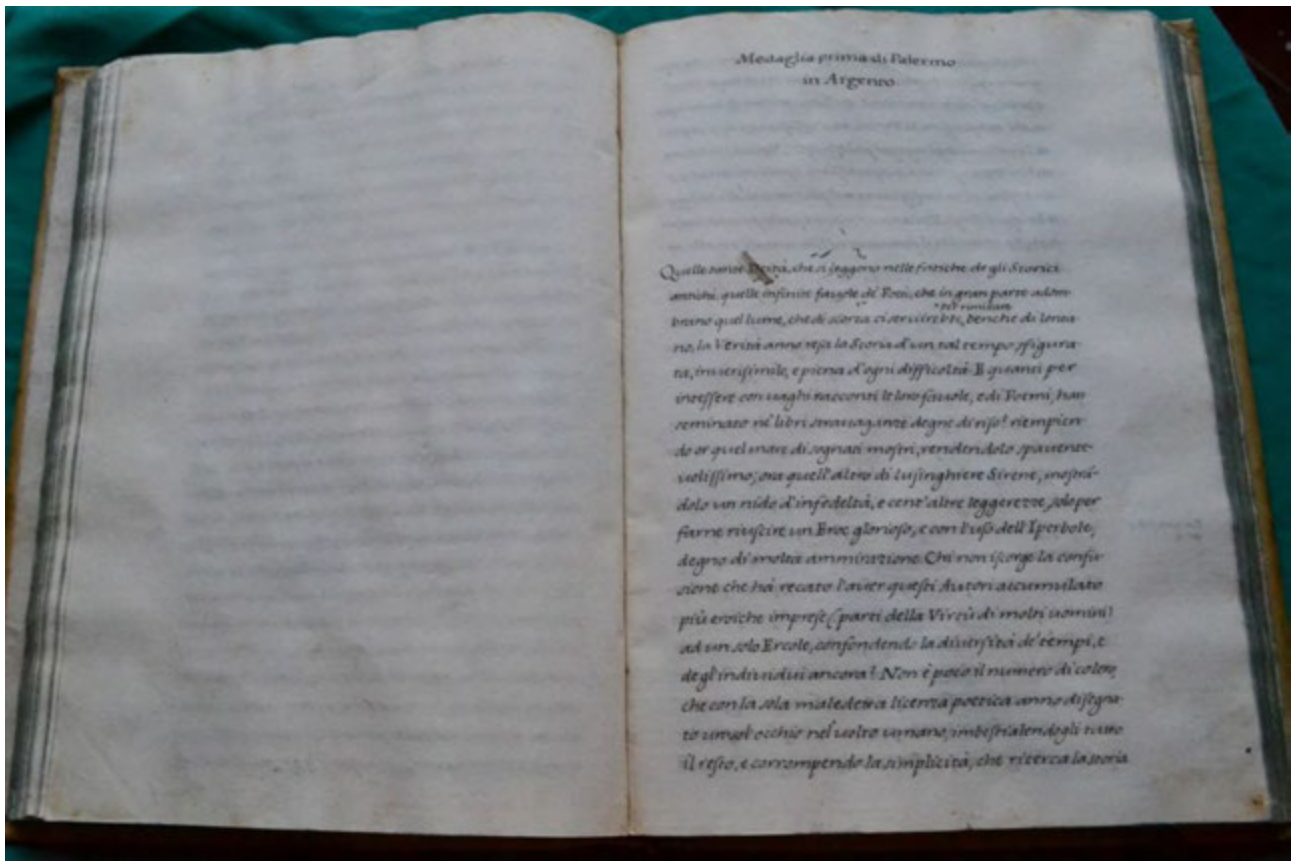 Medaglia prima di Palermo
in Argento
Quelle tante Deità, che si leggono nelle fatiche de gli Storici
antichi, quelle infinite fauole de' Poeti, che in gran parte adom-
per rimirare
brano quel lume, che di scorta ci seruirebbe, benche di lonta-
no, la Verità anno resa la Storia d'un tal tempo sfigura-
ta, inuerisimile, e piena d'ogni difficoltà. E quanti per
intessere con uaghi racconti le loro fauole, e di Poemi, han
seminato ne' libri strauaganze degne di riso! riempien-
do or quel mare di sognati mostri, rendendolo spauente-
uolissimo; ora quell'altro di lusinghiere Sirene, mostrã-
dolo un nido d'infedeltà, e cent'altre leggerezze, solo per
farne riuscire un Eroe glorioso, e con l'uso dell'Iperbole,
degno di molta ammirazione. Chi non iscorge la confu-
sione che hà recato l'auer questi Autori accumulato
più eroiche imprese (parti della Virtù di molti uomini)
ad un solo Ercole, confondendo la diuersità de' tempi, e
degl'indiuidui ancora! Non è poco il numero di coloro,
che con la sola maledetta licenza poetica anno disegna-
to un sol occhio nel uolto umano, imbestialendogli tutto
il resto, e corrompendo la simplicità, che ricerca la storia